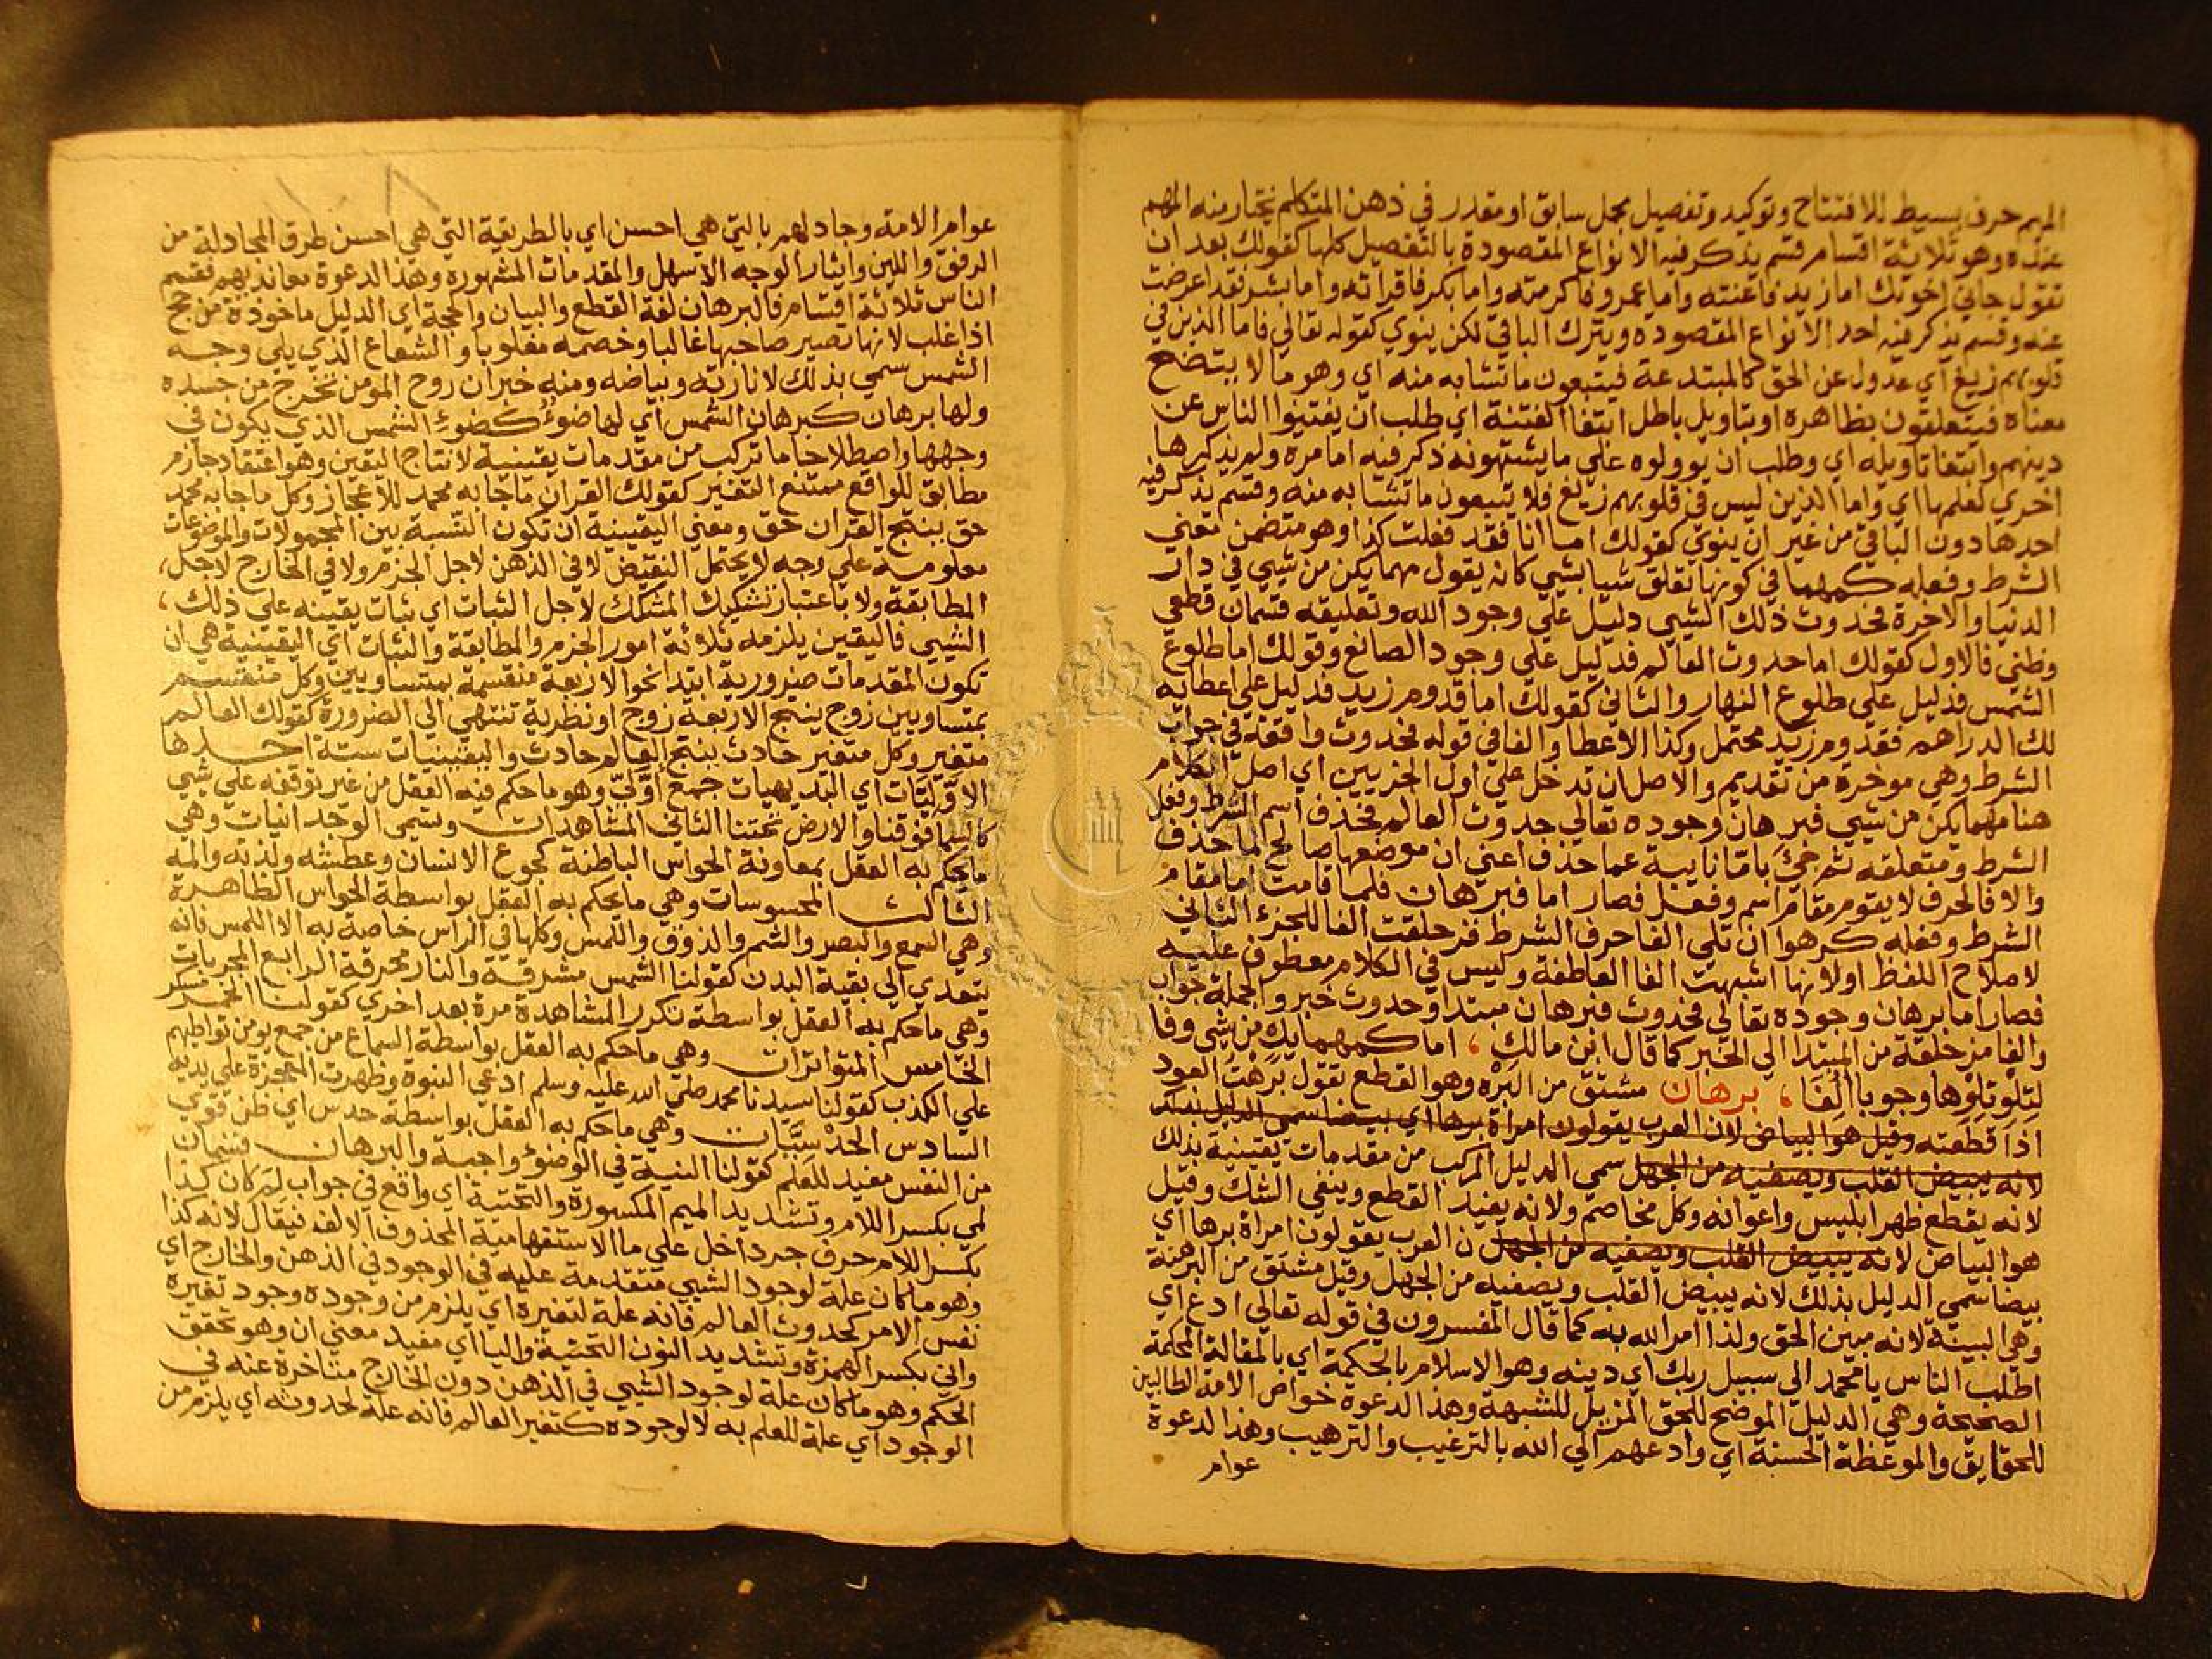 الميم حرف بسيط للافتتاح وتوكيد وتفصيل مجمل سابق او مقدر في ذهن المتكلم يختار منه المهم
عنده وهو ثلاثة اقسام قسم يذكر فيه الانواع المقصودة بالتفصيل كلها كقولك بعد ان
تقول جاني اخوتك اما زيد فاغنته واما عمرو فاكرمته واما بكر فاقراته واما بشر فقد اعرضت
عنه وقسم يذكر فيه احد الانواع المقصوده ويترك الباقي لكن ينوي كقوله تعالي فاما الذين في
قلوبهم زيغ اي عدول عن الحق كالمبتدعة فيتبعون ما تشابه منه اي وهو ما لا يتضح
معناه فيتعلقون بظاهره او بتاويل باطل ابتغا الفتنة اي طلب ان يفتنوا الناس عن
دينهم وابتغا تاويله اي وطلب ان يوولوه علي ما يشتهونه ذكر فيه اما مرة ولم يذكرها
اخري لعلمها اي واما الذين ليس في قلوبهم زيغ فلا يتبعون ما تشابه منه وقسم يذكر فيه
احدها دون الباقي من غير ان ينوي كقولك اما انا فقد فعلت كذا وهو متضمن معني
الشرط وفعله كمهما في كونها تعلق شيا بشي كانه يقول مهما يكن من شي في دار
الدنيا والاخرة فحدوث ذلك الشي دليل علي وجود الله وتعليقه قسمان قطعي
وظني فالاول كقولك اما حدوث العالم فدليل علي وجود الصانع وقولك اما طلوع
الشمس فدليل علي طلوع النهار والثاني كقولك اما قدوم زيد فدليل علي اعطايه
لك الدراهم فقدوم زيد محتمل وكذا الاعطا والفا في قوله فحدوث واقعة في جواب
الشرط وهي موخرة من تقديم والاصل ان تدخل علي اول الجزيين اي اصل الكلام
هنا مهما يكن من شي فبرهان وجوده تعالي حدوث العالم فحذف اسم الشرط وفعل
الشرط ومتعلقه ثم جيء باما نايبة عما حذف اعني ان موضعها صالح لما حذف
والا فالحرف لا يقوم مقام اسم وفعل فصار اما فبرهان فلما قامت اما مقام
الشرط وفعله كرهوا ان تلي الفا حرف الشرط فزحلقت الفا للجزء الثاني
لاصلاح اللفظ او لانها اشبهت الفا العاطفة وليس في الكلام معطوف عليه
فصار اما برهان وجوده تعالي فحدوث فبرهان مبتدا وحدوث خبر والجملة جواب
والفا مزحلقة من المبتدا الي الخبر كما قال ابن مالك ، اما كمهما يك من شي وفا
لتلو تلوها وجوبا الفا ، برهان مشتق من البره وهو القطع تقول برهت العود
اذا قطعته وقيل هو البياض لان العرب يقولون امراة برها اي بيضا سمي الدليل بذلك
لانه يبيض القلب ويصفيه من الجهل سمي الدليل المركب من مقدمات يقينية بذلك
لانه يقطع ظهر ابليس واعوانه وكل مخاصم ولانه يفيد القطع وينفي الشك وقيل
هو البياض لانه يبيض القلب ويصفيه من الجهل ن العرب يقولون امراة برها اي
بيضا سمي الدليل بذلك لانه يبيض القلب ويصفيه من الجهل وقيل مشتق من البرهنة
وهي البينة لانه مبين الحق ولذا امر الله به كما قال المفسرون في قوله تعالي ادع اي
اطلب الناس يا محمد الي سبيل ربك اي دينه وهو الاسلام بالحكمة اي بالمقالة المحكمة
الصحيحة وهي الدليل الموضح للحق المزيل للشبهة وهذا الدعوة خواص الامة الطالبين
للحقايق والموعظة الحسنة اي وادعهم الي الله بالترغيب والترهيب وهذا لدعوة
عوام
عوام الامة وجادلهم بالتي هي احسن اي بالطريقة التي هي احسن طرق المجادلة من
الرفق واللين وايثار الوجه الاسهل والمقدمات المشهوره وهذا لدعوة معانديهم فقسم
الناس ثلاثة اقسام فالبرهان لغة القطع والبيان والحجة اي الدليل ماخوذة من حج
اذا غلب لانها تصير صاحبها غالبا وخصمه مغلوبا والشعاع الذي يلي وجه
الشمس سمي بذلك لانارته وبياضه ومنه خبر ان روح المومن تخرج من جسده
ولها برهان كبرهان الشمس اي لها ضوء كضوء الشمس الذي يكون في
وجهها واصطلاحا ما تركب من مقدمات يقينية لانتاج اليقين وهو اعتقاد جازم
مطابق للواقع ممتنع التغير كقولك القران ما جا به محمد للاعجاز وكل ما جا به محمد
حق ينتج القران حق ومعني اليقينية ان تكون النسبة بين المحمولات والموضوعات
معلومة علي وجه لا يحتمل النقيض لا في الذهن لاجل الجزم ولا في الخارج لاجل ،
المطابقة ولا باعتبار تشكيك المشكك لاجل الثبات اي ثبات يقينه علي ذلك ،
الشيي فاليقين يلزمه ثلاثة امور الجزم والمطابقة والثبات اي اليقينية هي ان
تكون المقدمات ضرورية ابتدا نحو الاربعة منقسمة بمتساويين وكل منقسم
بمتساويين زوج ينتج الاربعة زوج او نظرية تنتهي الي الضرورة كقولك العالم
متغير وكل متغير حادث ينتج العالم حادث واليقينيات ستة احدها
الاوليات اي البديهيات جمع اولي وهو ما حكم فيه العقل من غير توقفه علي شيي
كالسما فوقنا والارض تحتنا الثاني المشاهدات وتسمي الوجدانيات وهي
ما يحكم به العقل بمعاونة الحواس الباطنة كجوع الانسان وعطشه ولذته والمه
الثالث المحسوسات وهي ما يحكم به العقل بواسطة الحواس الظاهرة
وهي السمع والبصر والشم والذوق واللمس وكلها في الراس خاصة به الا اللمس فانه
تتعدي الي بقية البدن كقولنا الشمس مشرقة والنار محرقة الرابع المجربات
وهي ما حكم به العقل بواسطة تكرر المشاهدة مرة بعد اخري كقولنا الخمر مسكر
الخامس المتواترات وهي ما حكم به العقل بواسطة السماع من جمع يومن تواطيهم
علي الكذب كقولنا سيدنا محمد صلي الله عليه وسلم ادعي النبوة وظهرت المعجزة علي يديه
السادس الحدسيات وهي ما حكم به العقل بواسطة حدس اي ظن قوي
من النفس مفيد للعلم كقولنا النية في الوضوء واجبة والبرهان قسمان
لمي بكسر اللام وتشديد الميم المكسورة والتحتية اي واقع في جواب لم كان كذا
بكسر اللام حرف جر داخل علي ما الاستفهامية المحذوف الالف فيقال لانه كذا
وهو ما كان علة لوجود الشيي متقدمة عليه في الوجود في الذهن والخارج اي
نفس الامر كحدوث العالم فانه علة لتغيره اي يلزم من وجوده وجود تغيره
واني بكسر الهمزة وتشديد النون التحتية واليا اي مفيد معني ان وهو تحقق
الحكم وهو ما كان علة لوجود الشيي في الذهن دون الخارج متاخرة عنه في
الوجود اي علة للعلم به لا لوجوده كتغير العالم فانه علة لحدوثه اي يلزم من